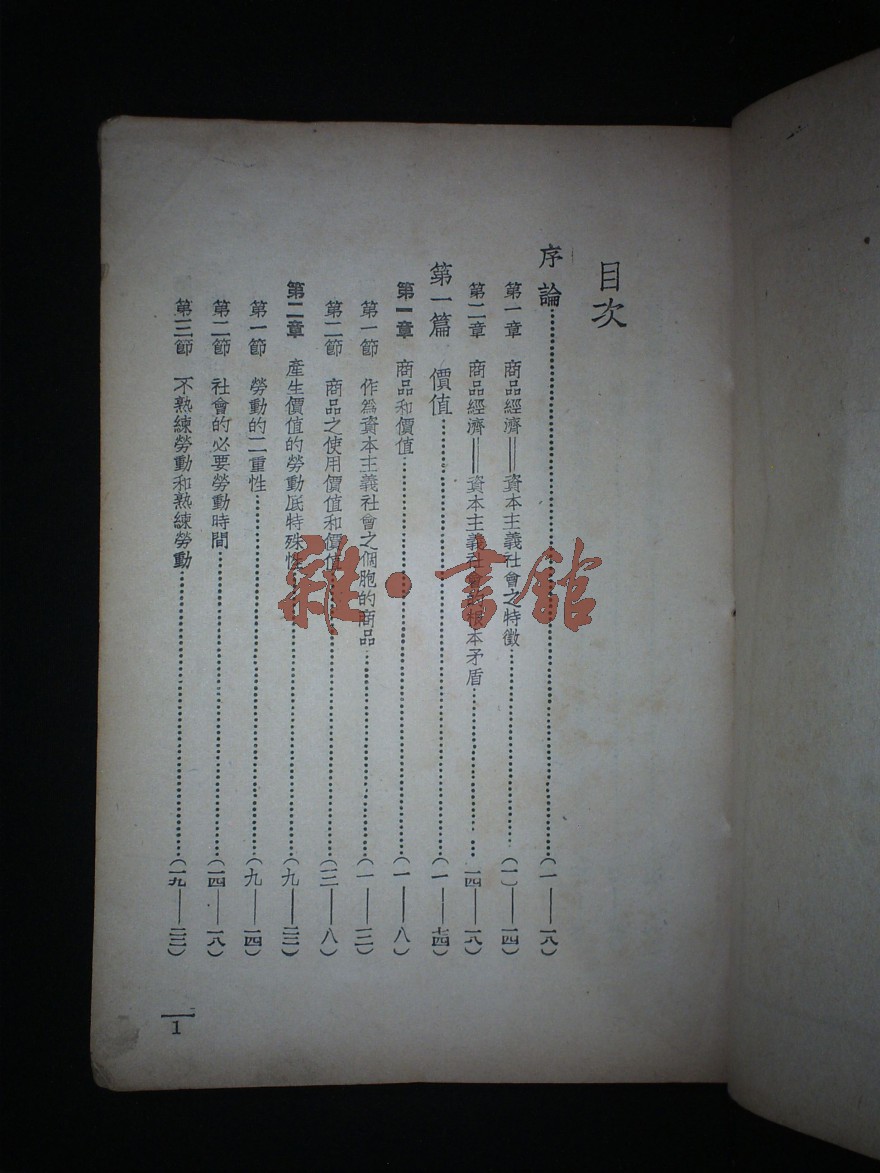 目次
序論……(一——一八)
第一章 商品經濟＝資本主義社會之特徵……(一)——一四)
第二章 商品經濟＝資本主義社會的根本矛盾……一四——一八)
第一篇 價值……(一——七四)
第一章 商品和價值……(一——八)
第一節 作為資本主義社會之個胞的商品……(一——三)
第二節 商品之使用價值和價值……(三——八)
第二章 產生價值的勞動底特殊性……(九——二三)
第一節 勞動的二重性……(九——一四)
第二節 社會的必要勞動時間……(一四——一八)
第三節 不熟練勞動和熟練勞動……(一九——二三)
1
雜·書館